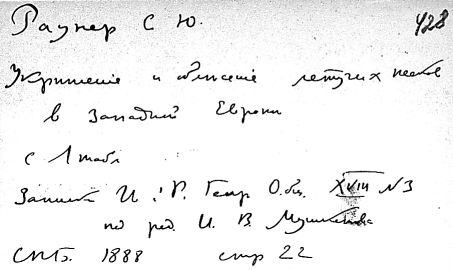 Раунер С Ю. 428
Укрепление и облесение летучих песков
в Западной Европе
с 1 табл
Записки И. Р. Геогр Общ. XVIII №3
под ред. И. В. Мушкетова
СПБ. 1888 стр 22